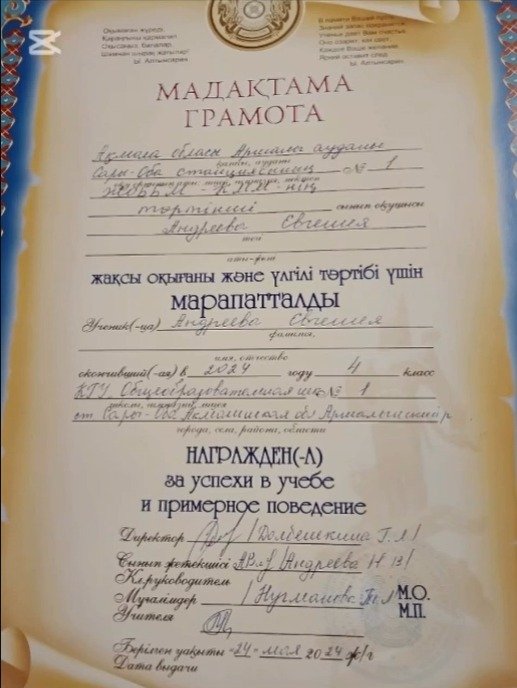 Оқымаған жүреді
Қараңғыны қармалап
Оқысаңыз, балалар,
Шамнан шырақ жағылар!
Ы. Алтынсарин
В памяти Вашей пусть
Знания запас хранится
Ученье даст Вам счастье
Оно озарит, как свет,
Каждое Ваше желание
Яркий оставит след
Ы. Алтынсарин
МАДАҚТАМА
ГРАМОТА
Ақмола облысы Аршалы ауданы
қаласы, ауданы
Сары-Оба станциясының № 1
ЖОББМ КММ-нің
төртінші сынып оқушысы
Андреева Евгения
тегі
аты-жөні
жақсы оқығаны және үлгілі тәртібі үшін
марапатталды
Ученик(-ца) Андреева Евгения
фамилия,
имя, отчество
окончивший(-ая) в 2024 году 4 класс
КГУ Общеобразовательная шк № 1
школы, гимназии, лицея
ст. Сары-Оба Акмолинская обл Аршалынский р
города, села, района, области
НАГРАЖДЕН(-А)
за успехи в учебе
и примерное поведение
Директор /Долбешкина Г.Л/
Сынып жетекшісі /Андреева Н В/
Кл.руководитель
Мұғалімдер /Нугманова
Учителя
М.О.
М.П.
Берілген уақыты «24» мая 2024 ж/г
Дата выдачи